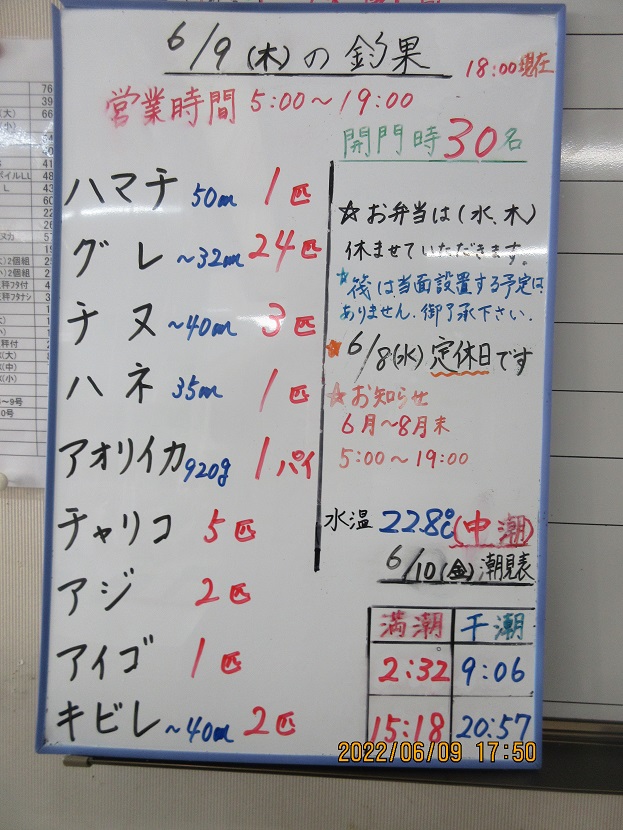 6/9(木)の釣果
18:00現在
営業時間 5:00～19:00
開門時30名
ハマチ 50cm 1匹
グレ ～32cm 24匹
チヌ ～40cm 3匹
ハネ 35cm 1匹
アオリイカ 920g 1パイ
チャリコ 5匹
アジ 2匹
アイゴ 1匹
キビレ ～40cm 2匹
☆お弁当は(水、木)
休ませていただきます。
★筏は当面設置する予定は
ありません.御了承下さい.
★6/8(水)定休日です
☆お知らせ
6月～8月末
5:00～19:00
水温 22.8℃(中潮)
6/10(金)潮見表
満潮 干潮
2:32 9:06
15:18 20:57
2022/06/09 17:50